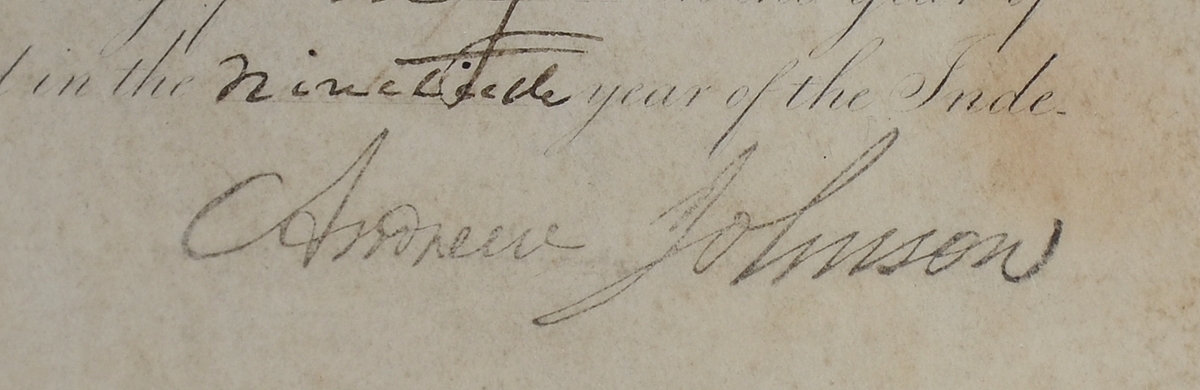 in the year of
in the ninetieth year of the Inde-
Andrew Johnson